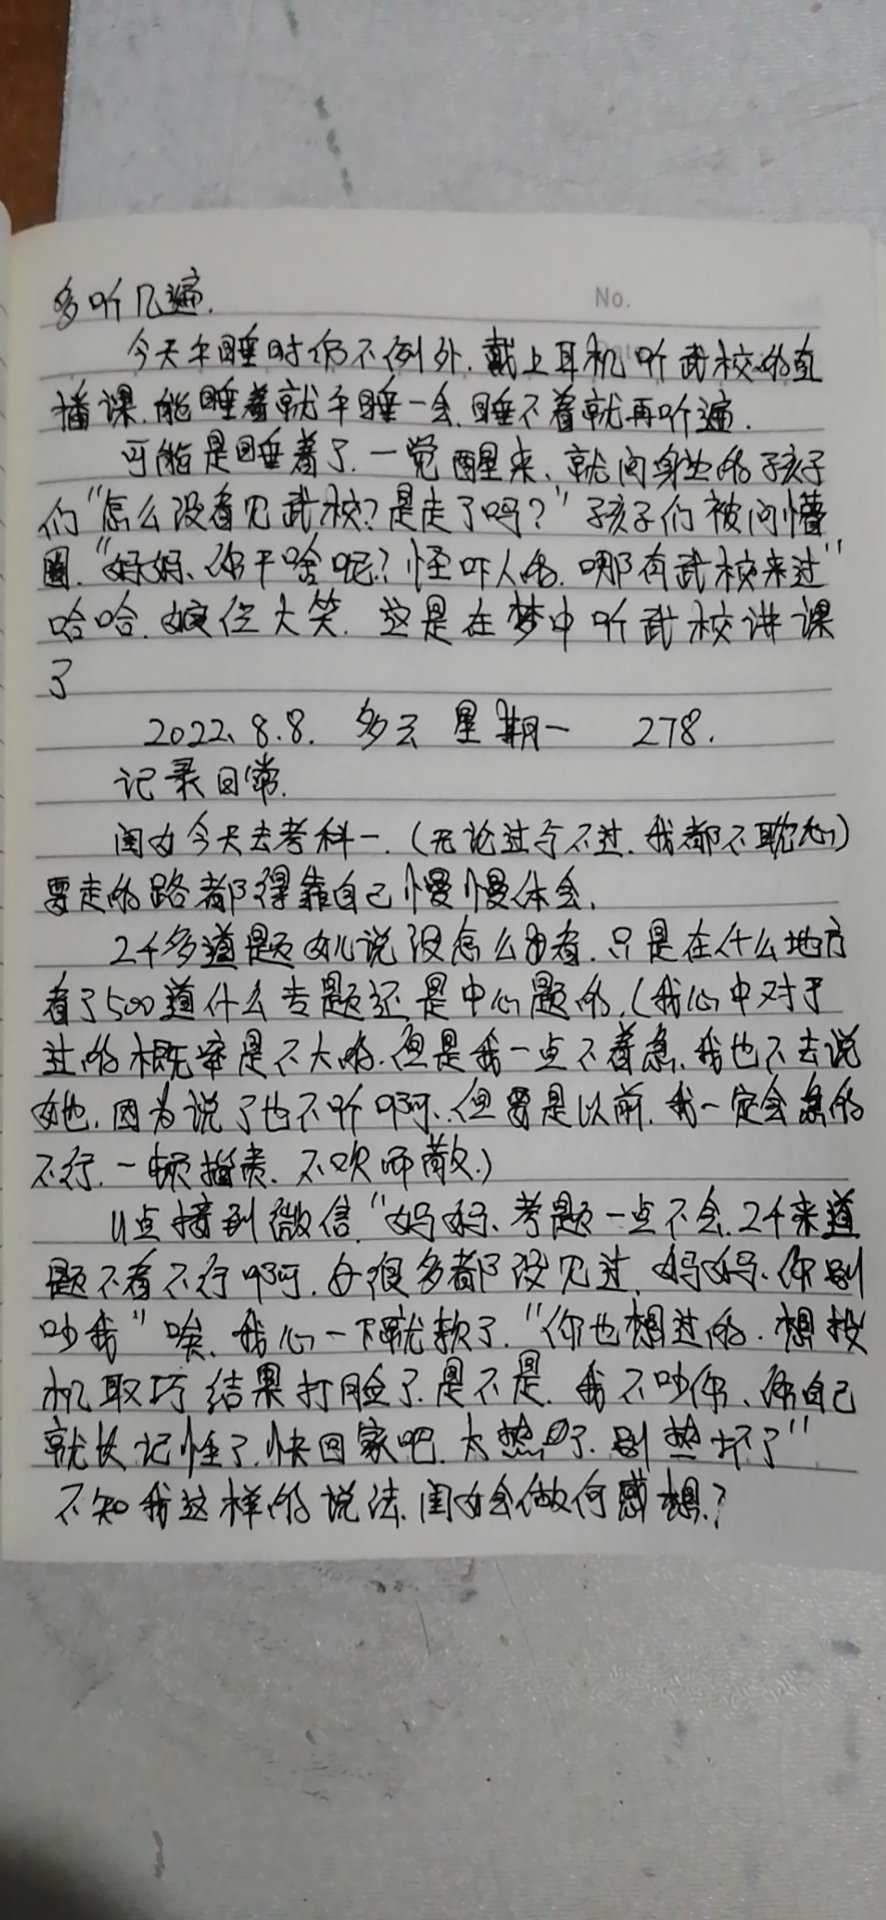 多听几遍.
No.
今天午睡时仍不例外.戴上耳机听武校的直
播课.能睡着就午睡一会.睡不着就再听遍.
可能是睡着了.一觉醒来、就问身边的孩子
们“怎么没看见武校?是走了吗?”孩子们被问懵
圈.“妈妈、你干啥呢?怪吓人的.哪有武校来过”
哈哈.捧大笑.这是在梦中听武校讲课
了
2022.8.8. 多云 星期一 278.
记录日常.
闺女今天去考科一.(无论过与不过.我都不耽心)
要走的路都得靠自己慢慢体会.
2千多道题女儿说没怎么看.只是在什么地方
看了500道什么专题还是中心题的.(我心中对于
过的概率是不大的.但是我一点不着急、我也不去说
她.因为说了也不听啊.但要是以前.我一定会急的
不行.一顿指责.不欢而散.)
11点接到微信.“妈妈、考题一点不会.2千来道
题不看不行啊.女很多都没见过.妈妈、你别
吵我”唉.我心一下就软了.“你也想过的.想投
机取巧结果打脸了.是不是.我不吵你、你自己
就长记性了.快回家吧.太热了.别热坏了”
不知我这样的说法.闺女会做何感想.?